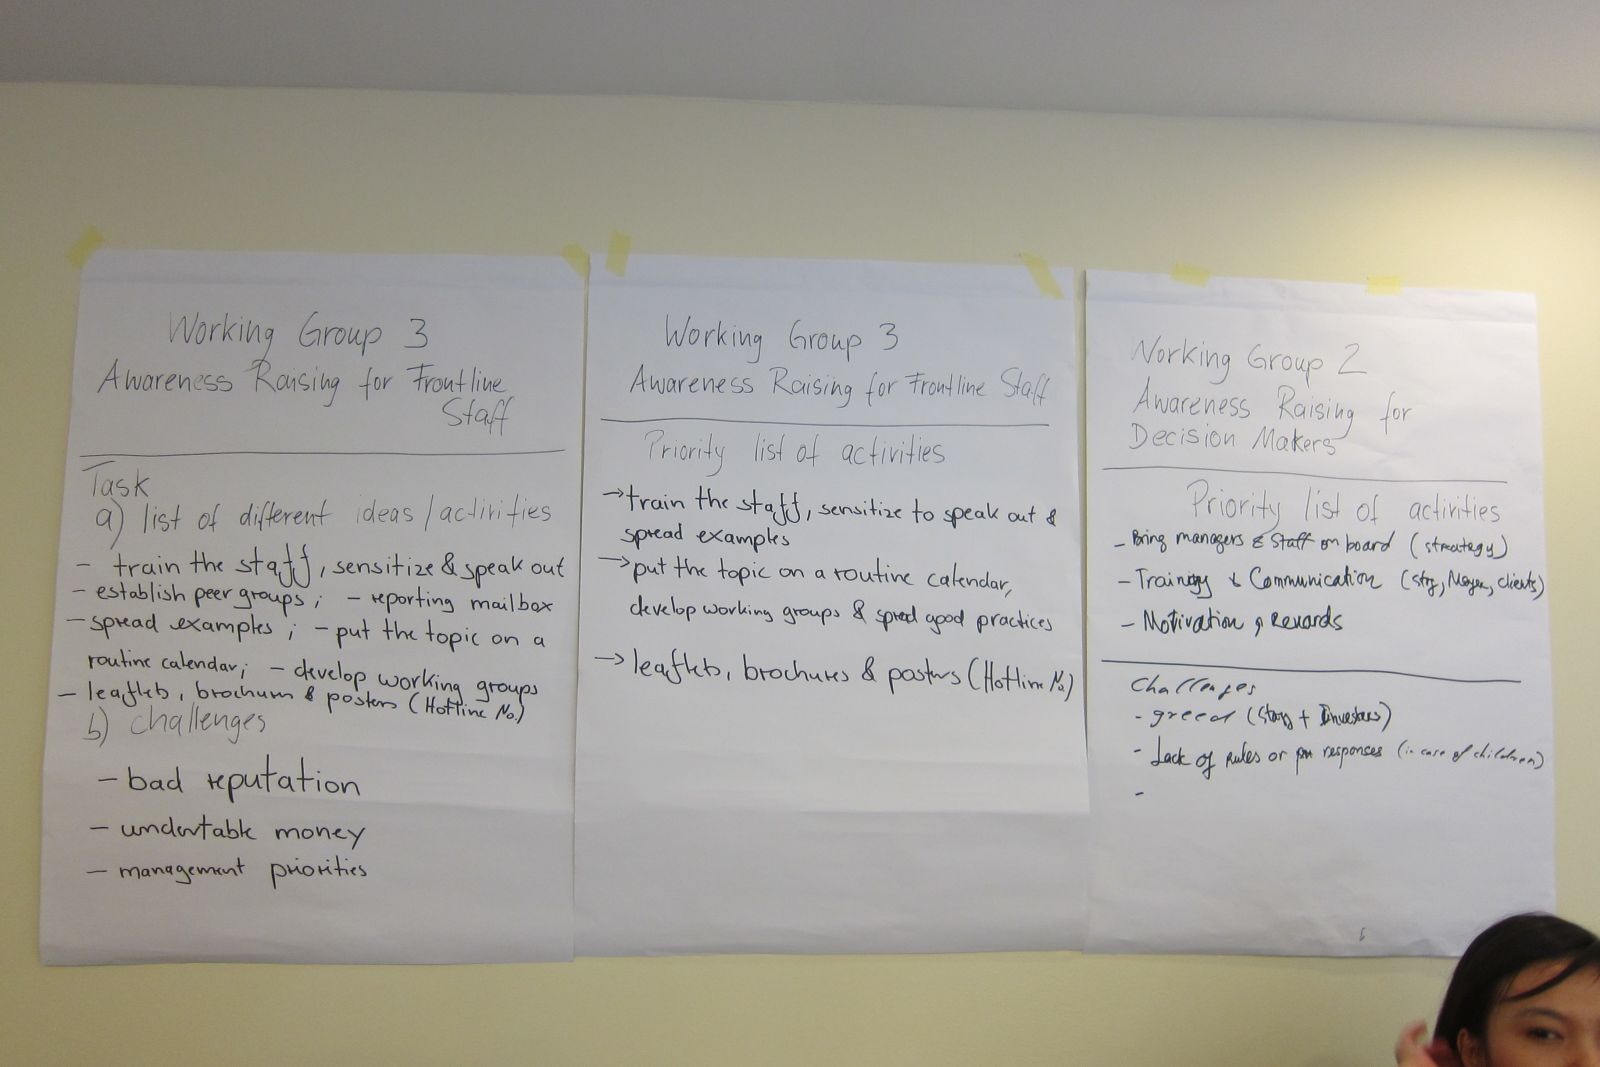 Working Group 3
Awareness Raising for Frontline
Staff
Task
a) list of different ideas / activities
- train the staff, sensitize & speak out
- establish peer groups; - reporting mailbox
- spread examples; - put the topic on a
routine calendar; - develop working groups
- leaflets, brochures & posters (Hotline No.)
b) challenges
- bad reputation
- undertable money
- management priorities
Working Group 3
Awareness Raising for Frontline Staff
Priority list of activities
→ train the staff, sensitize to speak out &
spread examples
→ put the topic on a routine calendar,
develop working groups & spread good practices
→ leaflets, brochures & posters (Hotline No.)
Working Group 2
Awareness Raising for
Decision Makers
Priority list of activities
- Bring managers & Staff on board (strategy)
- Training & Communication (clients)
- Motivation & Rewards
Challenges
- greed (+ Investors)
- Lack of rules or responses (in case of children)
-